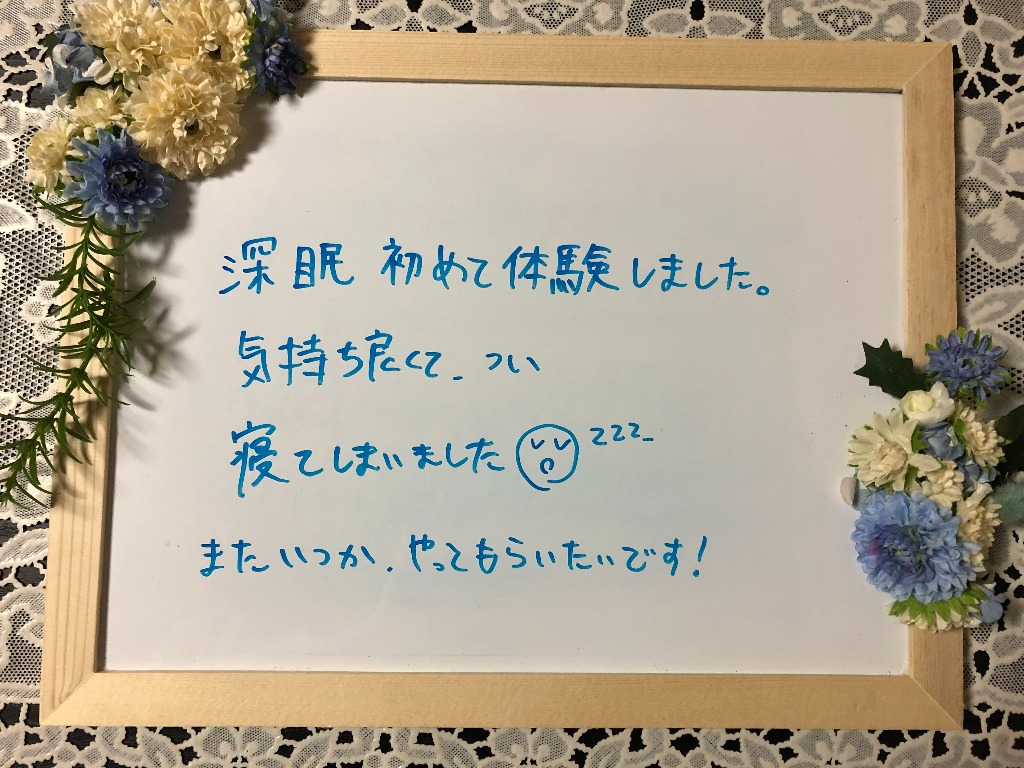 深眠 初めて体験しました。
気持ち良くて、つい
寝てしまいました zzz_
またいつか、やってもらいたいです！